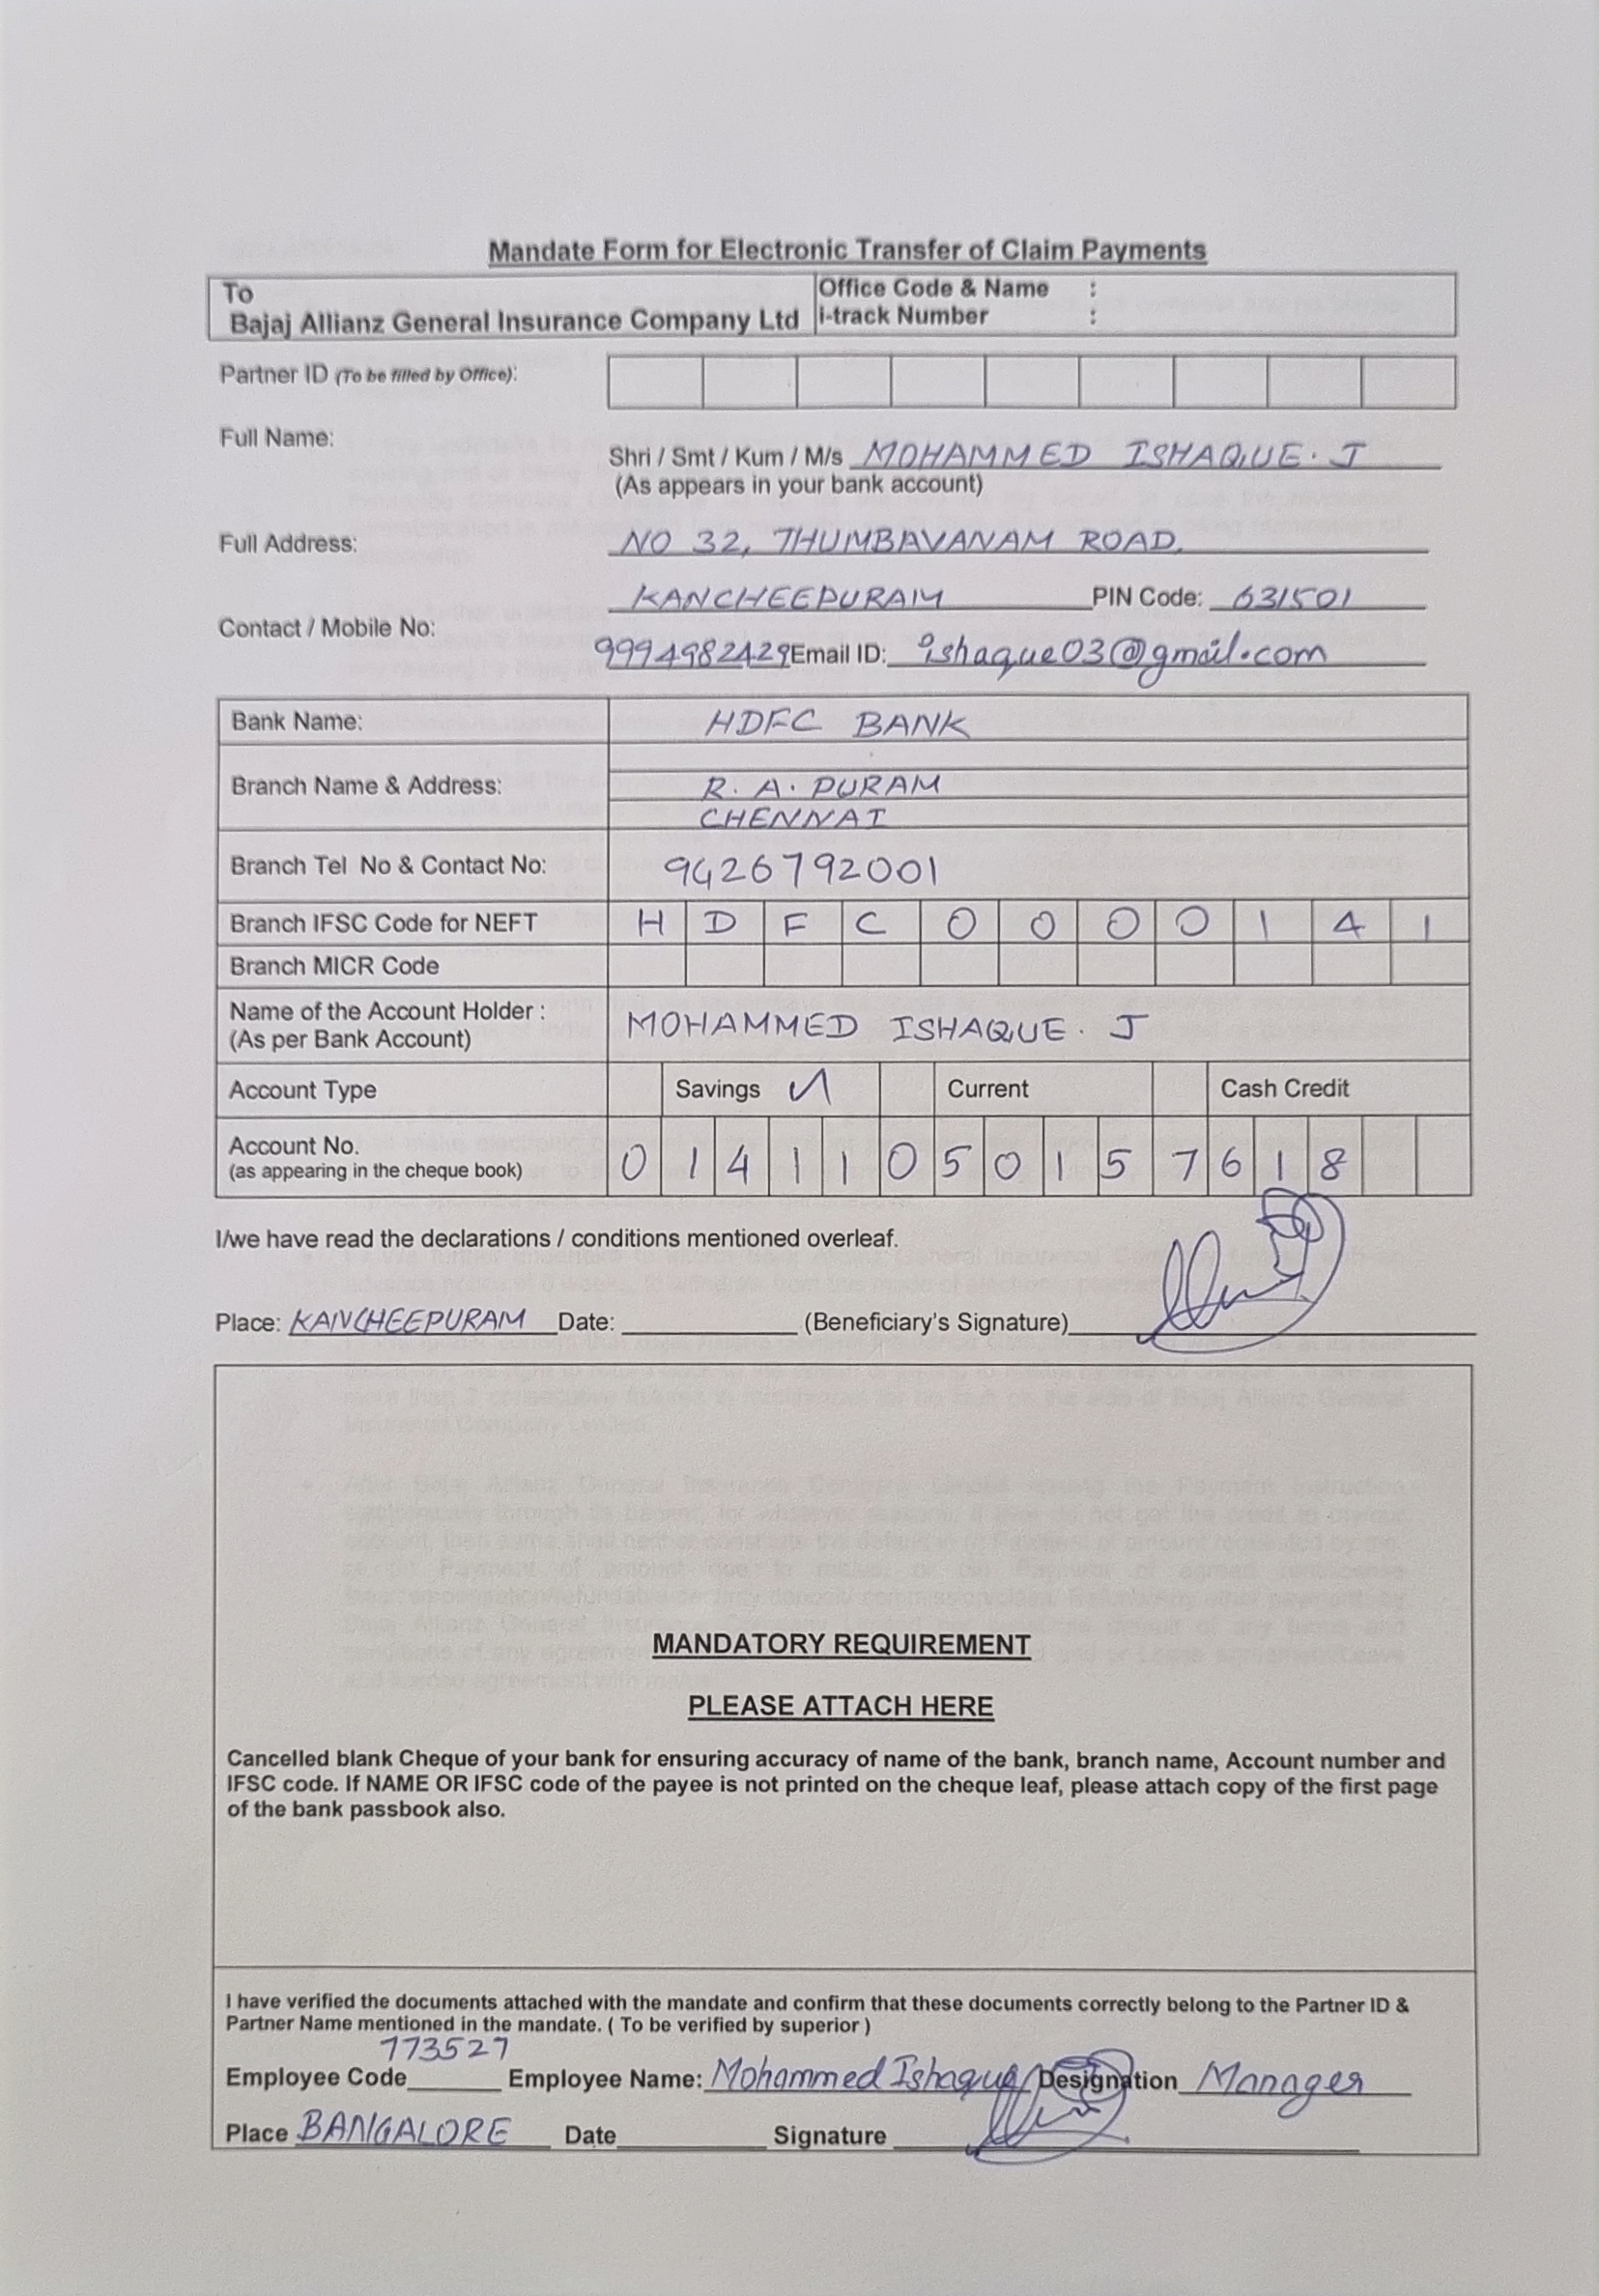 Mandate Form for Electronic Transfer of Claim Payments
To
Bajaj Allianz General Insurance Company Ltd
Office Code & Name :
i-track Number :
Partner ID (To be filled by Office):
Full Name:
Shri / Smt / Kum / M/s MOHAMMED ISHAQUE. J
(As appears in your bank account)
Full Address: NO 32, THUMBAVANAM ROAD,
KANCHEEPURAM PIN Code: 631501
Contact / Mobile No: 9994982429 Email ID: ishaque03@gmail.com
Bank Name: HDFC BANK
Branch Name & Address: R. A. PURAM
CHENNAI
Branch Tel No & Contact No: 9426792001
Branch IFSC Code for NEFT H D F C 0 0 0 0 1 4 1
Branch MICR Code
Name of the Account Holder :
(As per Bank Account) MOHAMMED ISHAQUE. J
Account Type Savings Current Cash Credit
Account No.
(as appearing in the cheque book) 0 1 4 1 1 0 5 0 1 5 7 6 1 8
I/we have read the declarations / conditions mentioned overleaf.
Place: KANCHEEPURAM Date: (Beneficiary's Signature)
MANDATORY REQUIREMENT
PLEASE ATTACH HERE
Cancelled blank Cheque of your bank for ensuring accuracy of name of the bank, branch name, Account number and
IFSC code. If NAME OR IFSC code of the payee is not printed on the cheque leaf, please attach copy of the first page
of the bank passbook also.
I have verified the documents attached with the mandate and confirm that these documents correctly belong to the Partner ID &
Partner Name mentioned in the mandate. ( To be verified by superior )
Employee Code 773527 Employee Name: Mohammed Ishaque Designation Manager
Place BANGALORE Date Signature